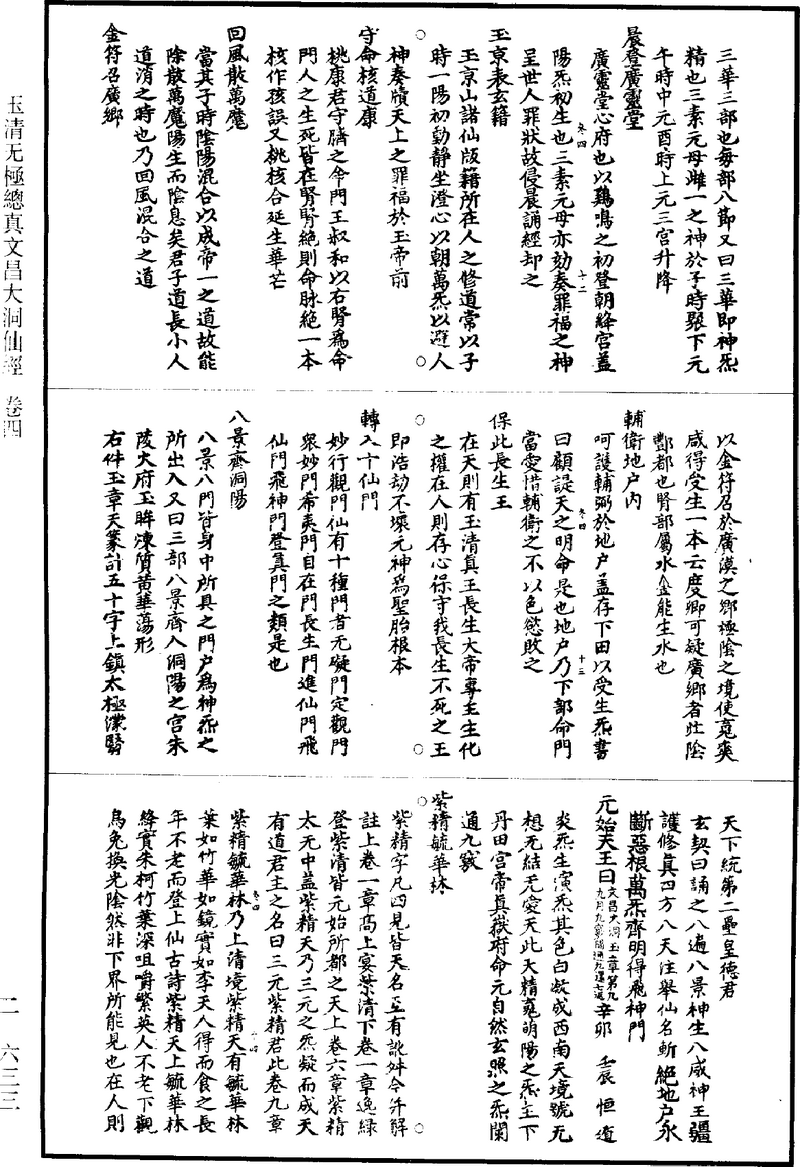 三華三部也每部八節又曰三華即神炁
精也三素元母雌一之神於子時聚下元
午時中元酉時上元三宮升降
晨登廣靈堂
廣靈堂心府也以鷄鳴之初登朝絳宮蓋
陽炁初生也三素元母亦劾奏罪福之神
呈世人罪狀故侵晨誦經却之
玉京表玄籍
玉京山諸仙版籍所在人之修道常以子
時一陽初動靜坐澄心以朝萬炁以避人
神奏牘天上之罪福於玉帝前
守命核道康
桃康君守臍之命門王叔和以右腎爲命
門人之生死皆在腎腎絶則命脉絶一本
核作孩誤又桃核合延生華芒
回風散萬魔
當其子時陰陽混合以成帝一之道故能
除散萬魔陽生而陰息矣君子道長小人
道消之時也乃回風混合之道
金符召廣鄉
以金符召於廣漢之鄉極陰之境使䰟爽
咸得受生一本云度卿可疑廣鄉者壯陰
酆都也腎部屬水金能生水也
輔衛地户内
呵護輔弼於地户蓋存下田以受生炁書
曰顧諟天之明命是也地户乃下部命門
當愛惜輔衛之不以色慾敗之
保此長生王
在天則有玉清真王長生大帝專主生化
之權在人則存心保守我長生不死之王
即浩劫不壞元神爲聖胎根本
轉入十仙門
妙行觀門仙有十種門者无礙門定觀門
衆妙門希夷門自在門長生門進仙門飛
仙門飛神門登真門之類是也
八景齊洞陽
八景八門皆身中所具之門户爲神炁之
所出入又曰三部八景齊入洞陽之宮朱
陵火府玉眸凍質黄華蕩形
右件玉章天篆計五十字上鎮太極濛翳
天下統第二壘皇德君
玄契曰誦之八遍八景神生八威神王彊
護修真四方八天注舉仙名斬絶地户永
斷惡根萬炁齊明得飛神門
元始天王曰文昌大洞玉章第九辛卯　壬辰　恒遁
炎炁生演炁其色白故成西南天境號无
想无結无愛天此天精䰟明陽之炁主下
丹田宮帝真嶽府命元自然玄照之炁關
通九竅
紫精毓華林
紫精字凡四見皆天名互有訛舛今并解
註上卷一章高上宴紫清下卷一章逸緑
登紫清皆元始所都之天上卷六章紫精
太无中蓋紫精天乃三元之炁凝而成天
有道君主之名曰三元紫精君此卷九章
紫精毓華林乃上清境紫精天有毓華林
葉如竹華如鏡實如李天人得而食之長
年不老而登上仙古詩紫精天上毓華林
絳實朱柯竹葉深咀嚼繁英人不老下觀
烏兔換光陰然非下界所能見也在人則
玉清无極總真文昌大洞仙經　卷四
二　六三三